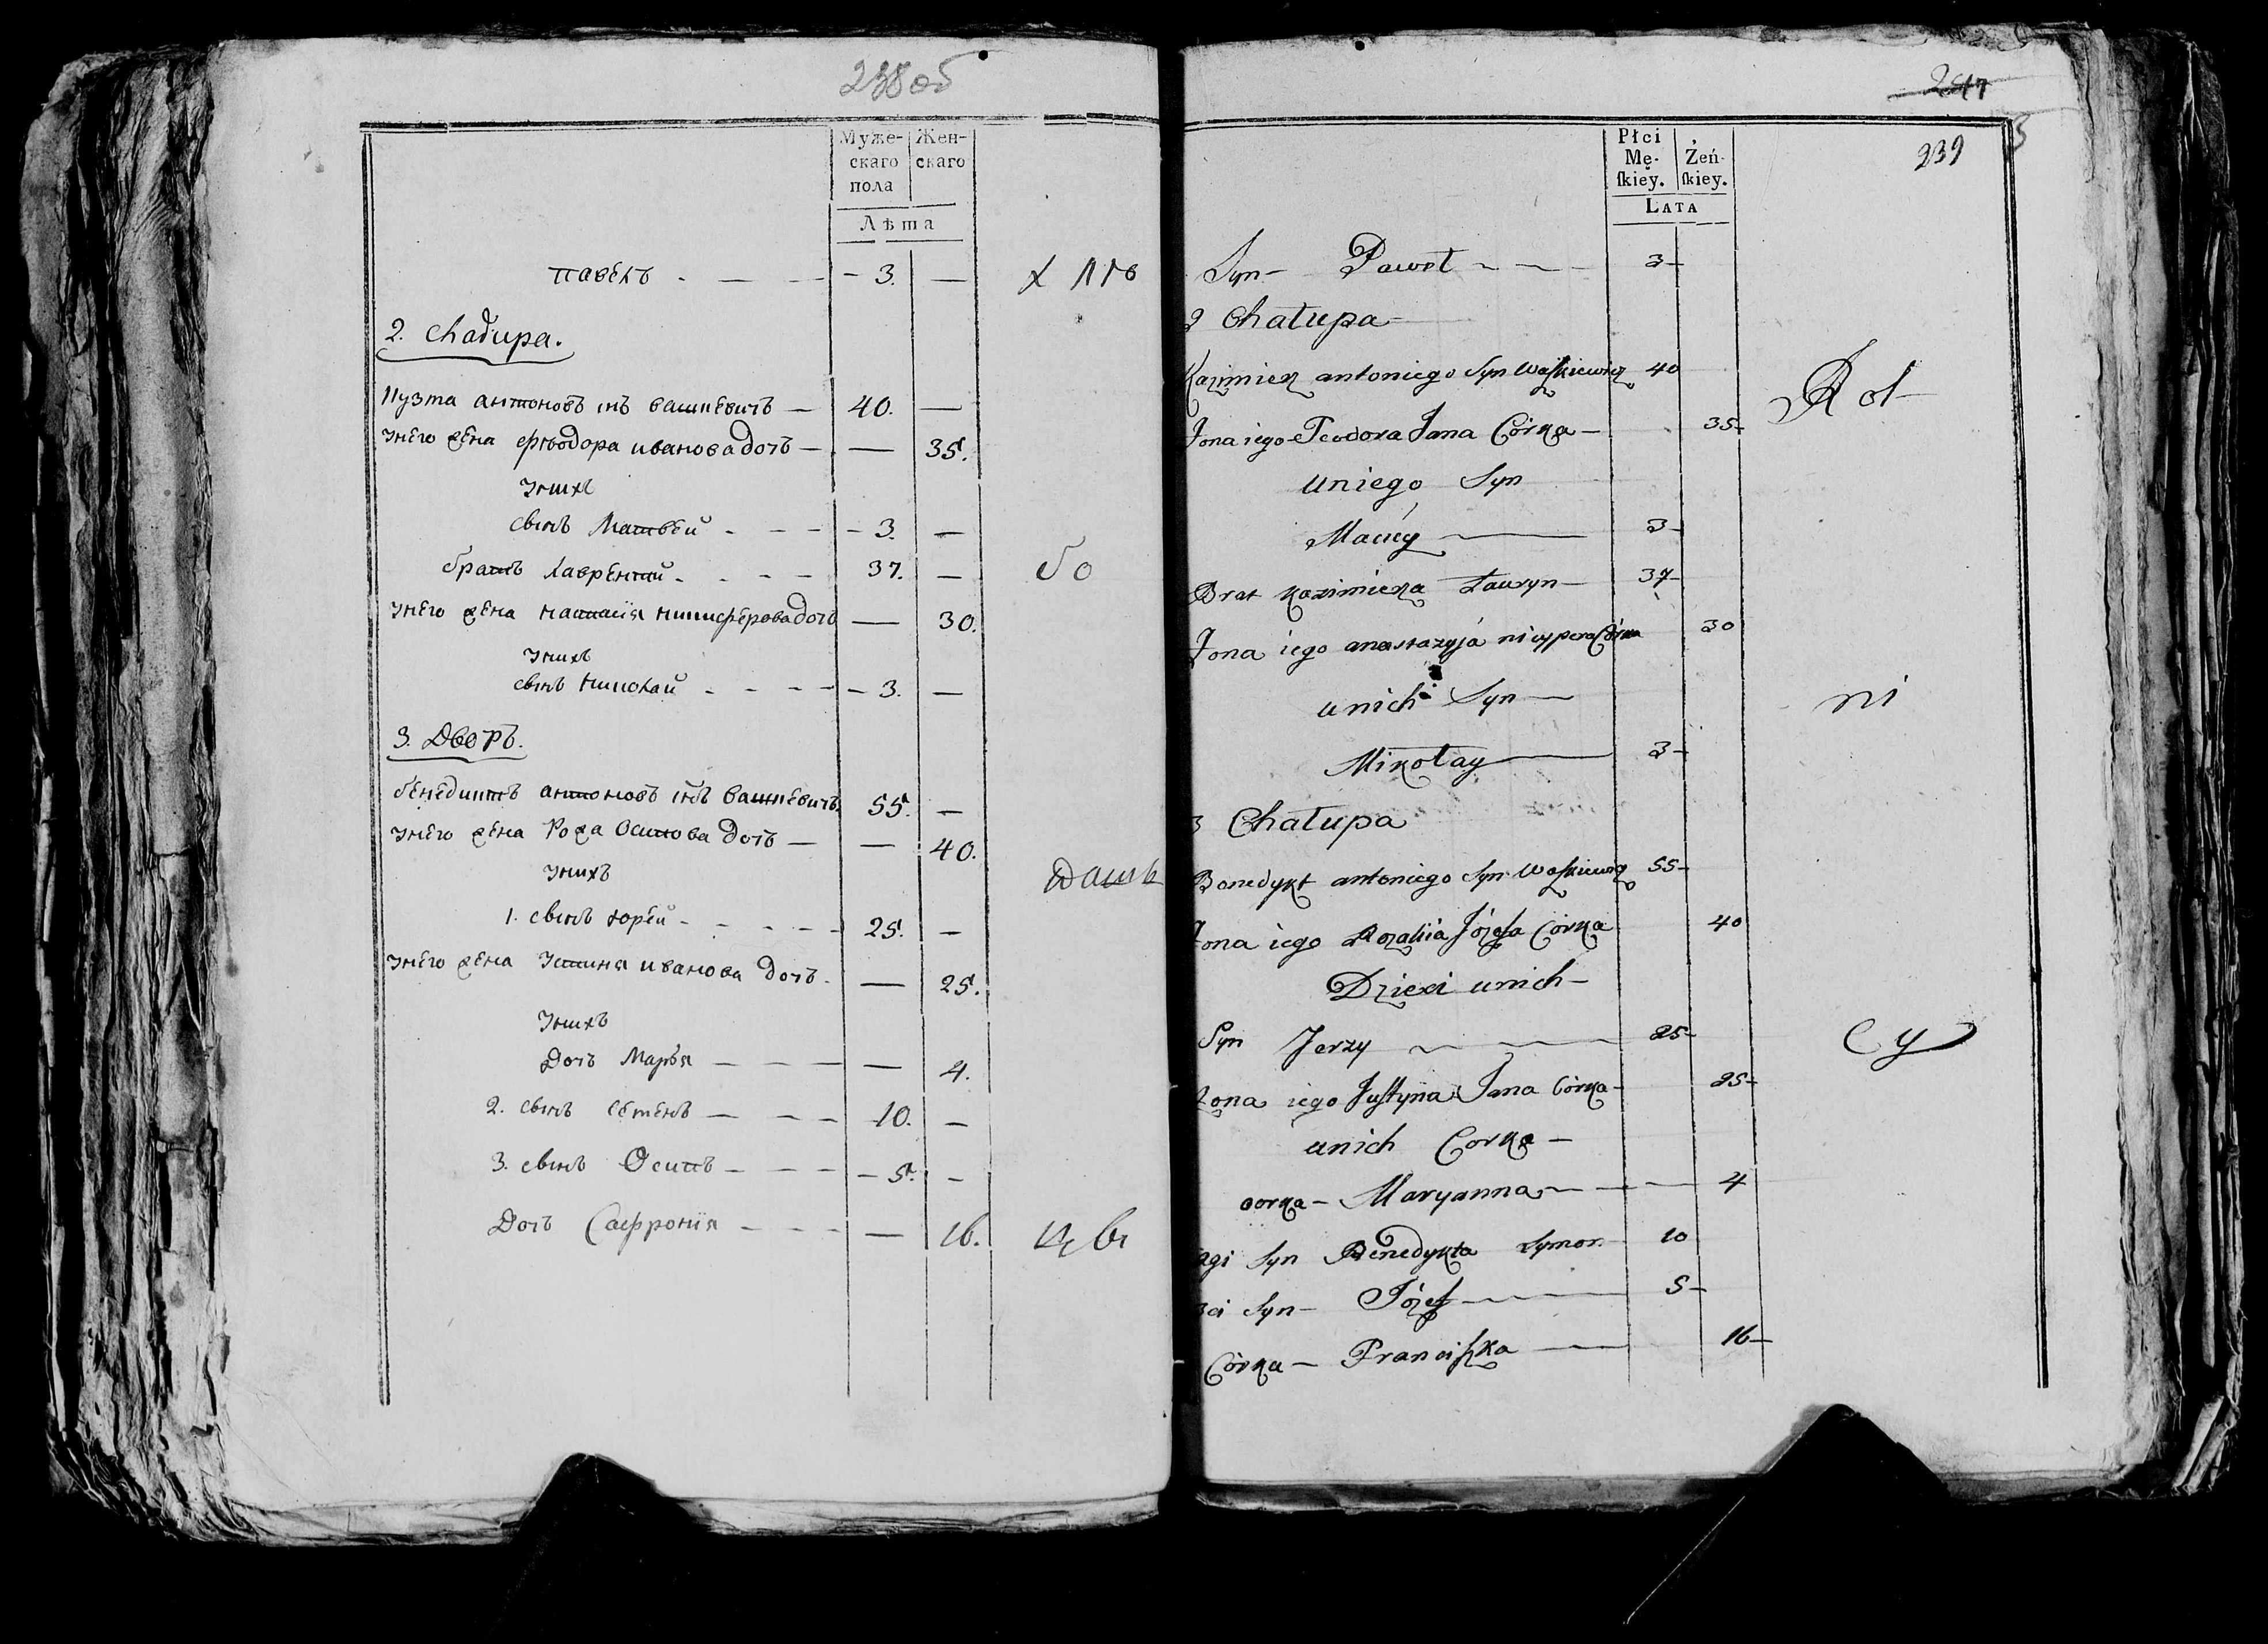 238об
Муже-
скаго
пола
Жен-
скаго
Лѣта
павелъ - 3. —
х лѣ
2. Chałupa.
Кузма антоновъ снъ вашкевичъ — 40. —
унего жена фѣодора иванова дочъ — — 35.
унихъ
сынъ Матвей - 3. —
братъ лаврентий - 37. —
бо
унего жена настасія никиферова дочъ — 30.
унихъ
сынъ николай - 3. —
3. Дворъ.
бенедиктъ антоновъ снъ вашкевичъ 55. —
унего жена Рожа Осипова дочъ — — 40.
унихъ
дашь
1. сынъ юрей - 25. —
унего жена устиня иванова дочъ - — 25.
унихъ
Дочъ Маръя — — 4.
2. сынъ семенъ — 10. —
3. сынъ Осипъ — 5. —
Дочъ Сафронія — — 16.
247
239
Płci
Mę-
ſkiey.
Żeń-
ſkiey.
LATA
Syn - Paweł — 3 -
2 Chałupa
Kazimierz antoniego Syn Waſkiewicz 40
Rol
Żona iego Teodora Jana Córka — 35 -
uniego Syn
Maciey — 3 -
Brat Kazimierza Ławryn — 37 -
Żona iego anastazyja nicypera Córka 30
unich Syn —
ni
Mikołay — 3 -
3 Chałupa
Benedykt antoniego Syn Waſkiewicz 55 -
Żona iego Rozaliia Józefa Córka 40
Dzieci unich -
Syn Jerzy — 25 -
cy
Żona iego Juſtyna Jana Córka - 25 -
unich Corka —
corka - Maryanna — 4
2gi Syn Benedykta Symon - 10
3ci Syn - Józef — 5 -
Córka - Franciſzka — 16 -